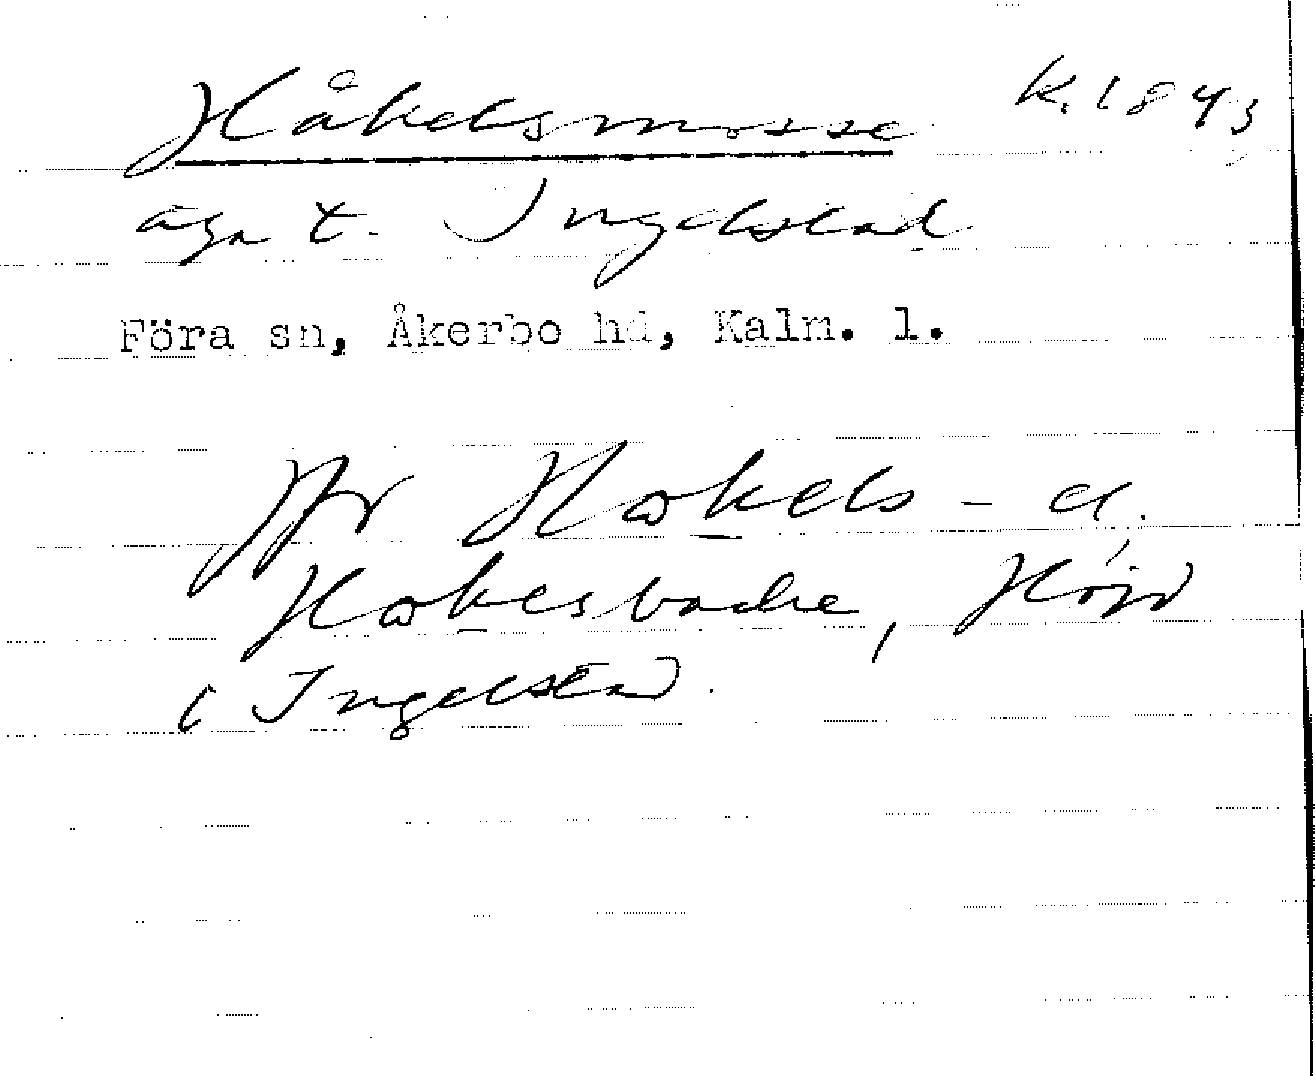 Håkelsmosse K. 1843
äga t. Ingelstad
Föra sn, Åkerbo hd, Kalm. l.
Jfr Hakels- el.
Hakesbacke, Höjd
i Ingelstad.